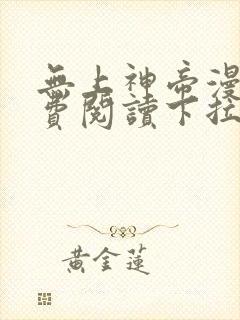 無上神帝漫
費閱讀下拉
黃金蓮